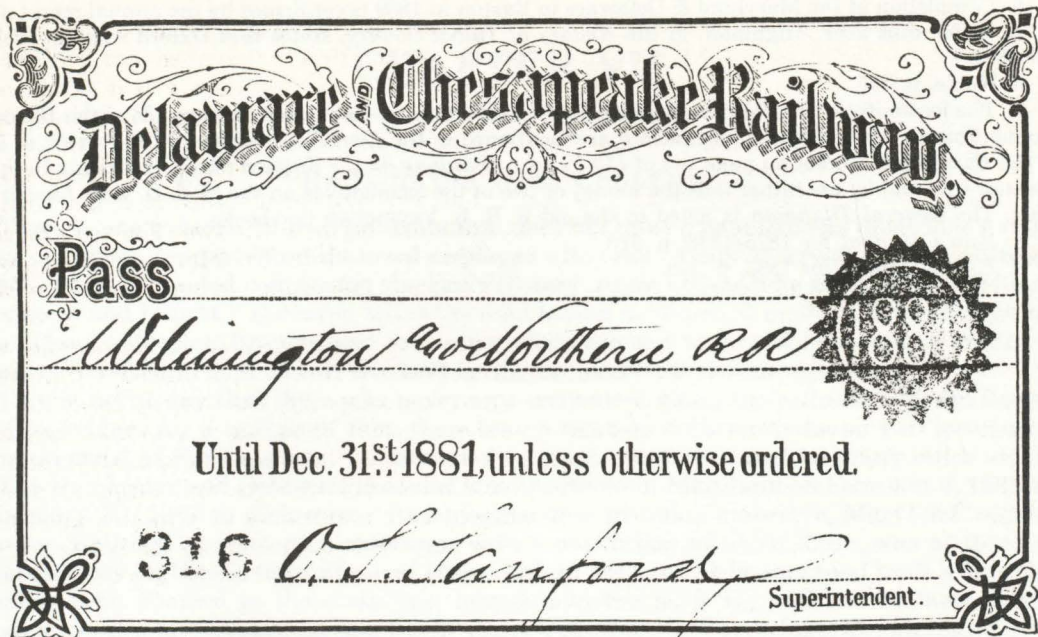 Delaware AND Chesapeake Railway.
Pass
1881
Wilmington and Northern RR
Until Dec. 31st 1881, unless otherwise ordered.
316
Superintendent.